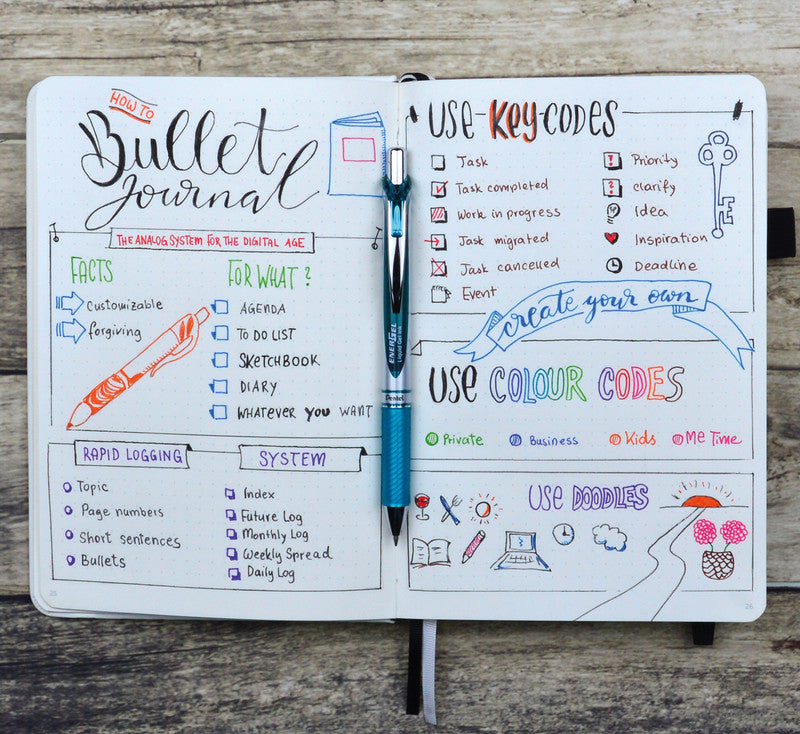 HOW TO
Bullet
Journal
THE ANALOG SYSTEM FOR THE DIGITAL AGE
FACTS
Customizable
forgiving
FOR WHAT?
AGENDA
TO DO LIST
SKETCHBOOK
DIARY
WHATEVER YOU WANT
RAPID LOGGING
Topic
Page numbers
Short sentences
Bullets
SYSTEM
Index
Future Log
Monthly Log
Weekly Spread
Daily Log
25
ENERGEL
Liquid Gel Ink
Pentel
USE-KEY-CODES
Task
Task completed
Work in progress
Task migrated
Task cancelled
Event
! Priority
? clarify
Idea
Inspiration
Deadline
create your own
USE COLOUR CODES
Private
Business
Kids
Me Time
USE DOODLES
26